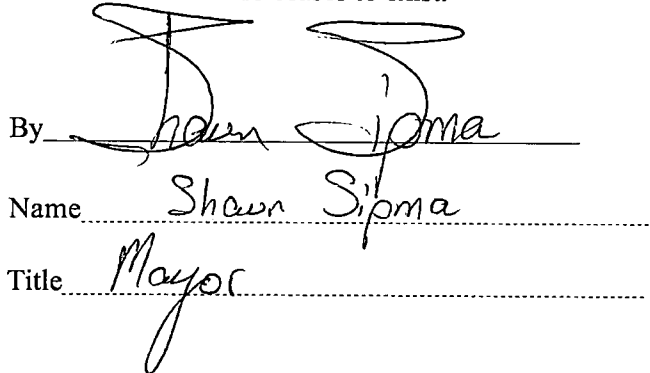 By Shawn Sipma
Name Shawn Sipma
Title Mayor